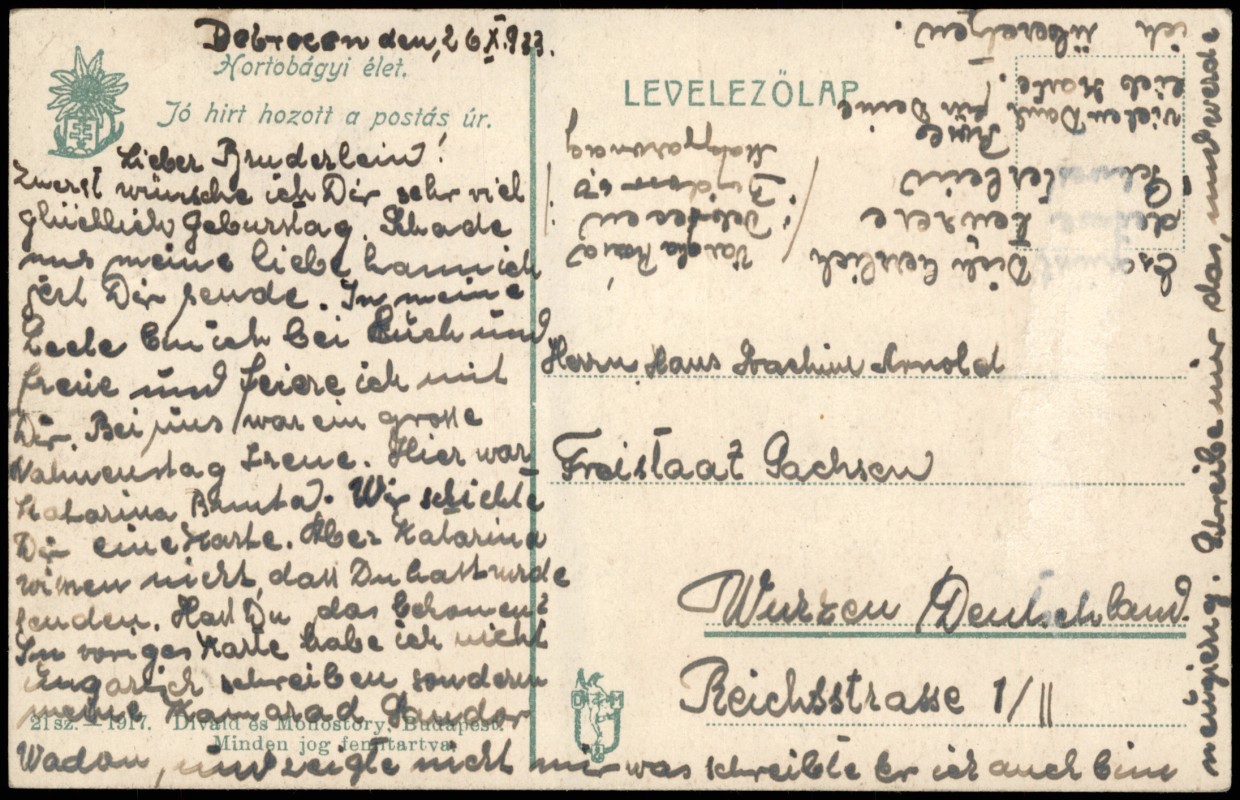 Debrecen den, 26 XI. 933.
Hortobágyi élet.
Jó hirt hozott a postás úr.
Lieber Bruderlein!
Zuerst wünsche ich Dir sehr viel
glücklich Geburstag. Schade
nur meine liebe kann ich
jezt Dir sende. In meine
Seele bin ich bei Euch und
freue und feiere ich mit
Dir. Bei uns war ein grosse
Nahmenstag Irene. Hier war
Katarina Bunta. Wir schickte
Dir eine Karte. Aber Katarina
wissen nicht, dass Du hast wurde
senden. Hast Du das bekomen?
In voriges Karte habe ich nicht
Ungarisch schreiben sondern
meine Kamarad Sandor
21 sz. — 1917. Divald és Monostory, Budapest.
Minden jog fenntartva.
Wadon, und zeigte nicht mir was schreibte Er ich auch bin
neugierig. Schreibe mir das, und werde
ich übersetzen.
LEVELEZŐLAP
vielen Dank für Deine
lieb Karte.
Es
Dich herzlich
deine
Schwesterlein
Debrecen
Magyarország
Herrn Hans Joachim Arnold
Freistaat Sachsen
Wurzen Deutschland.
Reichsstrasse 1/II
D M